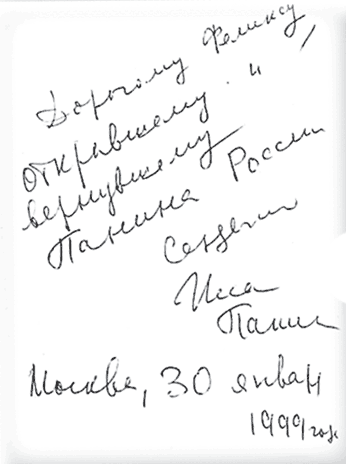 Дорогому Феликсу,
открывшему и
вернувшему
Панина России
Сердечно
Иса
Панин
Москва, 30 января
1999 год